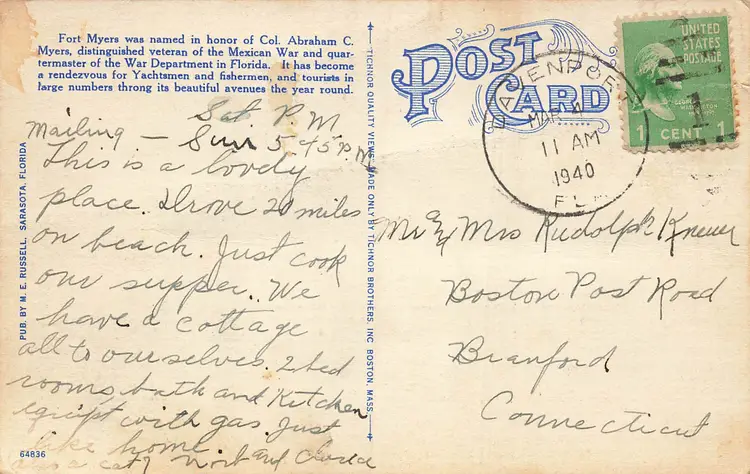 Fort Myers was named in honor of Col. Abraham C.
Myers, distinguished veteran of the Mexican War and quar-
termaster of the War Department in Florida. It has become
a rendezvous for Yachtsmen and fishermen, and tourists in
large numbers throng its beautiful avenues the year round.
Sat P.M
Mailing — Sun 5 45 P.M
This is a lovely
place. Drove 20 miles
on beach. Just cook
our supper. We
have a cottage
all to ourselves. 2 bed
rooms, bath and Kitchen
equipt with gas. Just
like home.
as a cat
64836
PUB. BY M. E. RUSSELL, SARASOTA, FLORIDA
TICHNOR QUALITY VIEWS MADE ONLY BY TICHNOR BROTHERS, INC BOSTON, MASS.
POST
CARD
DAVENPORT
MAR 4
11 AM
1940
FLA
UNITED
STATES
POSTAGE
GEORGE
WASHINGTON
1 CENT 1
Mr & Mrs Rudolph
Boston Post Road
Branford
Connecticut